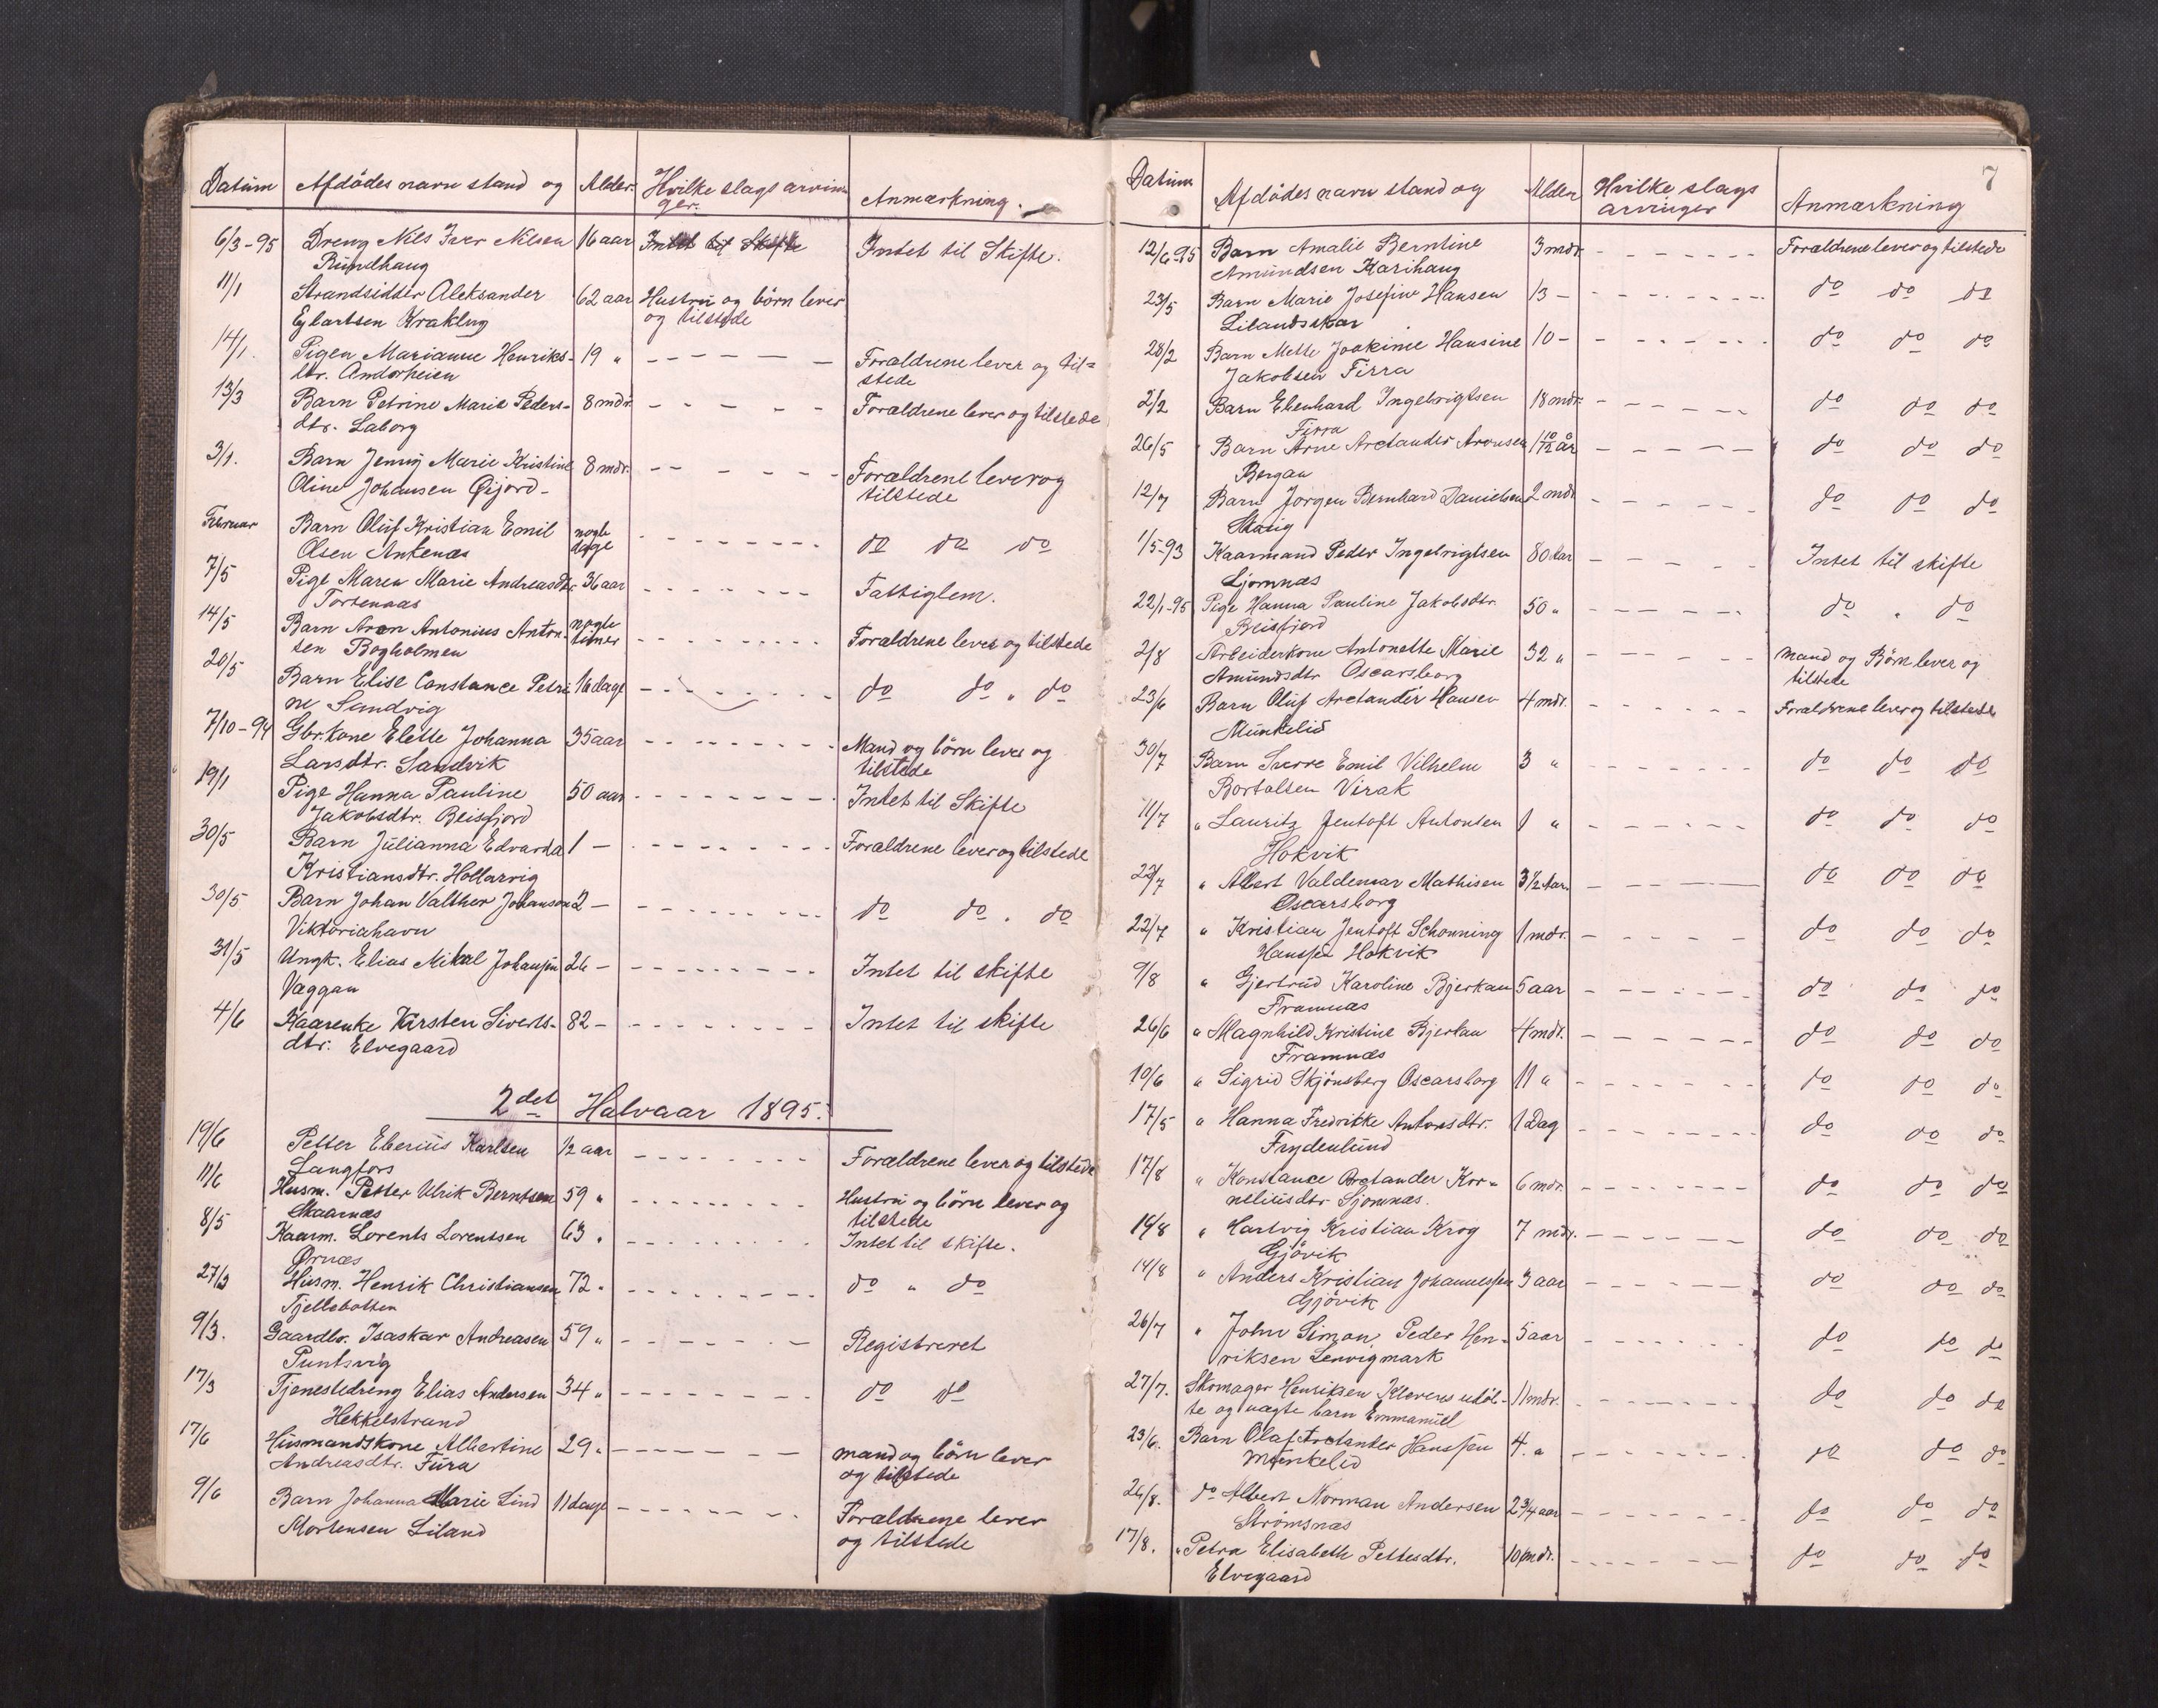 Datum Afdödes navn stand og Alder. Hvilke slags arvin Anmærkning.
ger.
6/3-95 Dreng Nils Iver Nilsen 16 aar Intet til Skifte Intet til Skifte.
Rundhaug
11/1 Strandsidder Aleksander 62 aar Hustru og börn lever
Ejlartsen Kraklug og tilstede
14/1. Pigen Marianne Henriks- 19 " Forældrene lever og til=
dtr. Andorheien stede
13/3 Barn Petrine Marie Peders- 8 mdr. Forældrene lever og tilstede
dtr. Laborg
3/1. Barn Jenny Marie Kristine 8 mdr. Forældrene lever og
Oline Johansen Øijord- tilstede
Februar Barn Oluf Kristian Emil nogle do do do
Olsen Ankenæs dage
7/5 Pige Maren Marie Andreasdtr. 36 aar Fattiglem.
Tortenaas
14/5 Barn Aron Antonius Anton- nogle Forældrene lever og tilstede
sen Bogholmen timer
20/5 Barn Elise Constance Petri 16 dage do do " do
ne Sandvig
7/10-94 Gbr.kone Elette Johanna 35 aar Mand og börn lever og
Larsdtr. Sandvik tilstede
19/1 Pige Hanna Pauline 50 aar Intet til Skifte
Jakobsdtr. Beisfjord
30/5 Barn Julianna Edvarda 1 - Forældrene lever og tilstede
Kristiansdtr. Hollarvig
30/5 Barn Johan Valther Johanson 2 - do do . do
Viktoriahavn
31/5 Ungk. Elias Mikal Johansen 26 - Intet til skifte
Vaggan
4/6 Kaarenke Kirsten Siverts- 82 - Intet til skifte
dtr. Elvegaard
2det Halvaar 1895.
19/6 Petter Eberius Karlsen 1/2 aar Forældrene lever og tilstede
Langfors
11/6 Husm. Petter Ulrik Berntsen 59 " Hustru og börn lever og
Skaarnæs tilstede
8/5 Kaarm. Lorents Lorentsen 63 " Intet til skifte.
Ørnæs
27/3 Husm. Henrik Christiansen 72 " do " do
Fjellebotten
9/3. Gaardbr. Isaskar Andreasen 59 " Registreret
Puntsvig
17/3 Tjenestedreng Elias Andersen 34 " do do
Hekkelstrand
17/6 Husmandskone Albertine 29 " mand og börn lever
Andreasdtr. Fura og tilstede
9/6 Barn Johanna Marie Lind 11 dage Forældrene lever
Mortensen Liland og tilstede
7
Datum Afdödes navn stand og Alder Hvilke slags Anmærkning
arvinger
12/6-95 Barn Amalie Berntine 3 mdr. Forældrene lever og tilstede
Amundsen Karihaug
23/5 Barn Marie Josefine Hansen 13 - do do do
Lilandskar
28/2 Barn Mette Joakime Hansine 10 - do do do
Jakobsen Firra
2/2 Barn Ebenhard Ingebrigtsen 18 mdr. do do do
Firra
26/5 Barn Arne Arctander Aronsen 1 10/12 år do do do
Bergan
12/7 Barn Jørgen Bernhard Danielsen 2 mdr do do do
Skarig
1/5-93 Kaarmand Peder Ingebrigtsen 80 Aar Intet til skifte
Ljomnæs
22/1-95 Pige Hanna Pauline Jakobsdtr. 50 " do " do
Beisfjord
2/8 Arbeiderkone Antonette Marie 32 " mand og Börn lever og
Amundsdtr Oscarsborg tilstede
23/6 Barn Oluf Arctander Hansen 4 mdr. Forældrene lever og tilstede
Munkelid
30/7 Barn Sverre Emil Vilhelm 3 " do do do
Bortolsen Virak
11/7 " Lauritz Jentoft Antonsen 1 " do do do
Hokvik
22/7 " Albert Valdemar Mathisen 3 1/2 Aar. do do do
Oscarsborg
22/7 " Kristian Jentoft Schønning 1 mdr. do do do
Hanssen Hokvik
9/8 " Gjertrud Karoline Bjerkan 5 aar do do do
Framnæs
26/6 " Magnhild Kristine Bjerkan 4 mdr. do do do
Framnæs
10/6 " Sigrid Skjönsberg Oscarsborg 11 " do do do
17/5 " Hanna Fredrikke Antonsdtr. 1 Dag do do do
Frydenlund
17/8 " Konstance Arctander Kor- 6 mdr. do do do
neliusdtr Ljomnæs.
19/8 " Hartvig Kristian Krog 7 mdr. do do do
Gjövik
14/8 " Anders Kristian Johannessen 3 aar do do do
Gjövik
26/7 " John Simon Peder Hen- 5 aar do do do
riksen Lenvigmark
27/7. Skomager Henriksen Kleveres udöb- 11 mdr. do do do
te og uægte barn Emmanuel
23/6. Barn Olaf Arctander Hanssen 4. " do do do
Munkelid
26/8. do Albert Norman Andersen 2 3/4 aar do do do
Strømsnæs
17/8. " Petra Elisabeth Pettersdtr. 10 mdr. do do do
Elvegaard